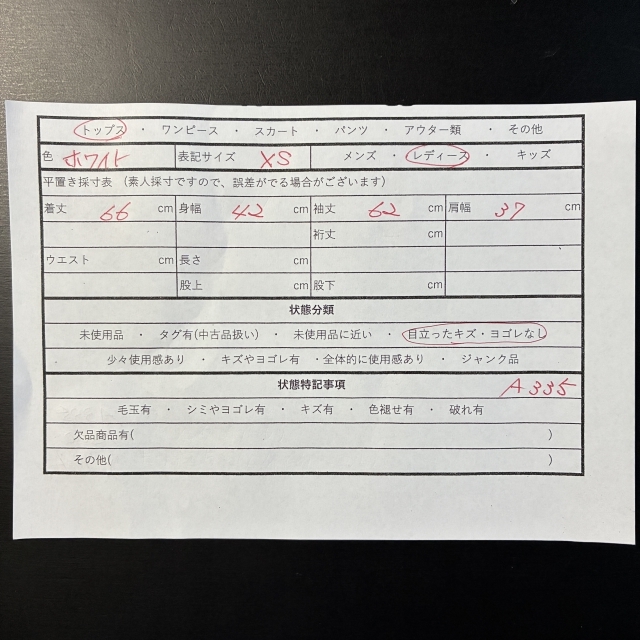 トップス ・ ワンピース ・ スカート ・ パンツ ・ アウター類 ・ その他
色 ホワイト 表記サイズ XS メンズ ・ レディース ・ キッズ
平置き採寸表 (素人採寸ですので、誤差がでる場合がございます)
着丈 66 cm 身幅 42 cm 袖丈 62 cm 肩幅 37 cm
裄丈 cm
ウエスト cm 長さ cm
股上 cm 股下 cm
状態分類
未使用品 ・ タグ有(中古品扱い) ・ 未使用品に近い ・ 目立ったキズ・ヨゴレなし
少々使用感あり ・ キズやヨゴレ有 ・全体的に使用感あり ・ ジャンク品
状態特記事項 A335
毛玉有 ・ シミやヨゴレ有 ・ キズ有 ・ 色褪せ有 ・ 破れ有
欠品商品有( )
その他( )